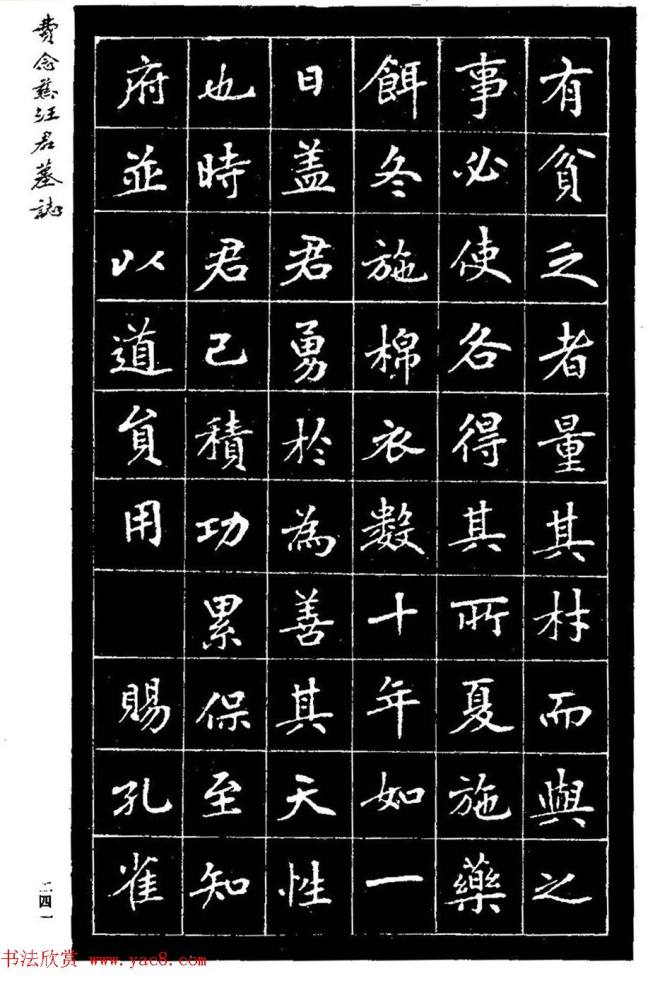 有貧乏者量其材而與之
事必使各得其所夏施藥
餌冬施棉衣數十年如一
日盖君勇於為善其天性
也時君已積功累保至知
府並以道員用 賜孔雀
費念慈汪君墓誌
二四一
书法欣赏 www.yac8.com